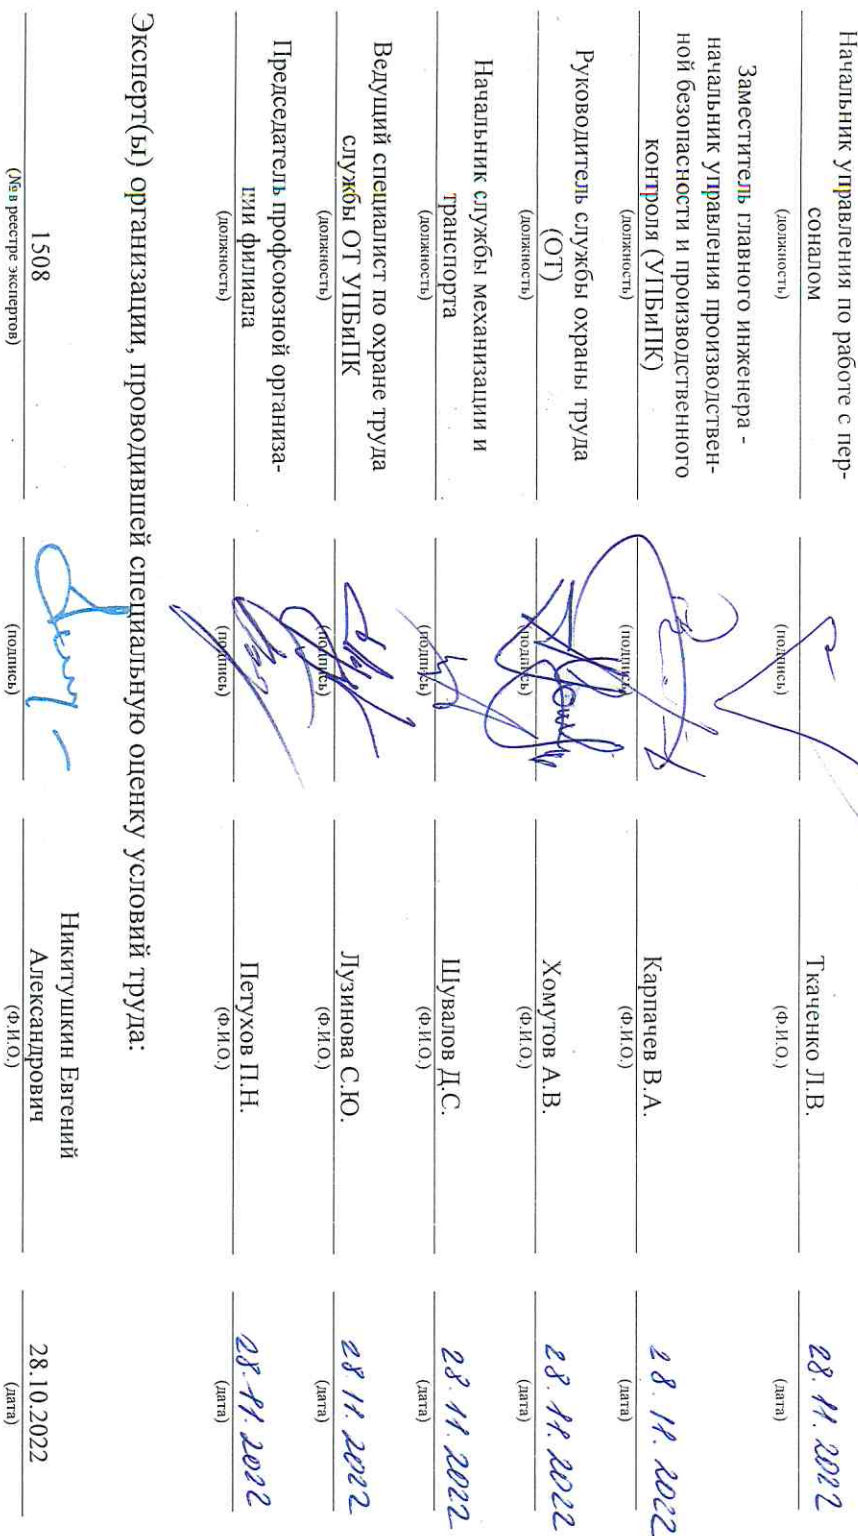 Начальник управления по работе с пер-
соналом
Ткаченко Л.В.
28.11.2022
(должность)
(подпись)
(Ф.И.О.)
(дата)
Заместитель главного инженера -
начальник управления производствен-
ной безопасности и производственного
контроля (УПБиПК)
Карпачев В.А.
28.11.2022
(должность)
(подпись)
(Ф.И.О.)
(дата)
Руководитель службы охраны труда
(ОТ)
Хомутов А.В.
28.11.2022
(должность)
(подпись)
(Ф.И.О.)
(дата)
Начальник службы механизации и
транспорта
Шувалов Д.С.
28.11.2022
(должность)
(подпись)
(Ф.И.О.)
(дата)
Ведущий специалист по охране труда
службы ОТ УПБиПК
Лузинова С.Ю.
28.11.2022
(должность)
(подпись)
(Ф.И.О.)
(дата)
Председатель профсоюзной организа-
ции филиала
Петухов П.Н.
28.11.2022
(должность)
(подпись)
(Ф.И.О.)
(дата)
Эксперт(ы) организации, проводившей специальную оценку условий труда:
1508
Никитушкин Евгений
Александрович
28.10.2022
(№ в реестре экспертов)
(подпись)
(Ф.И.О.)
(дата)